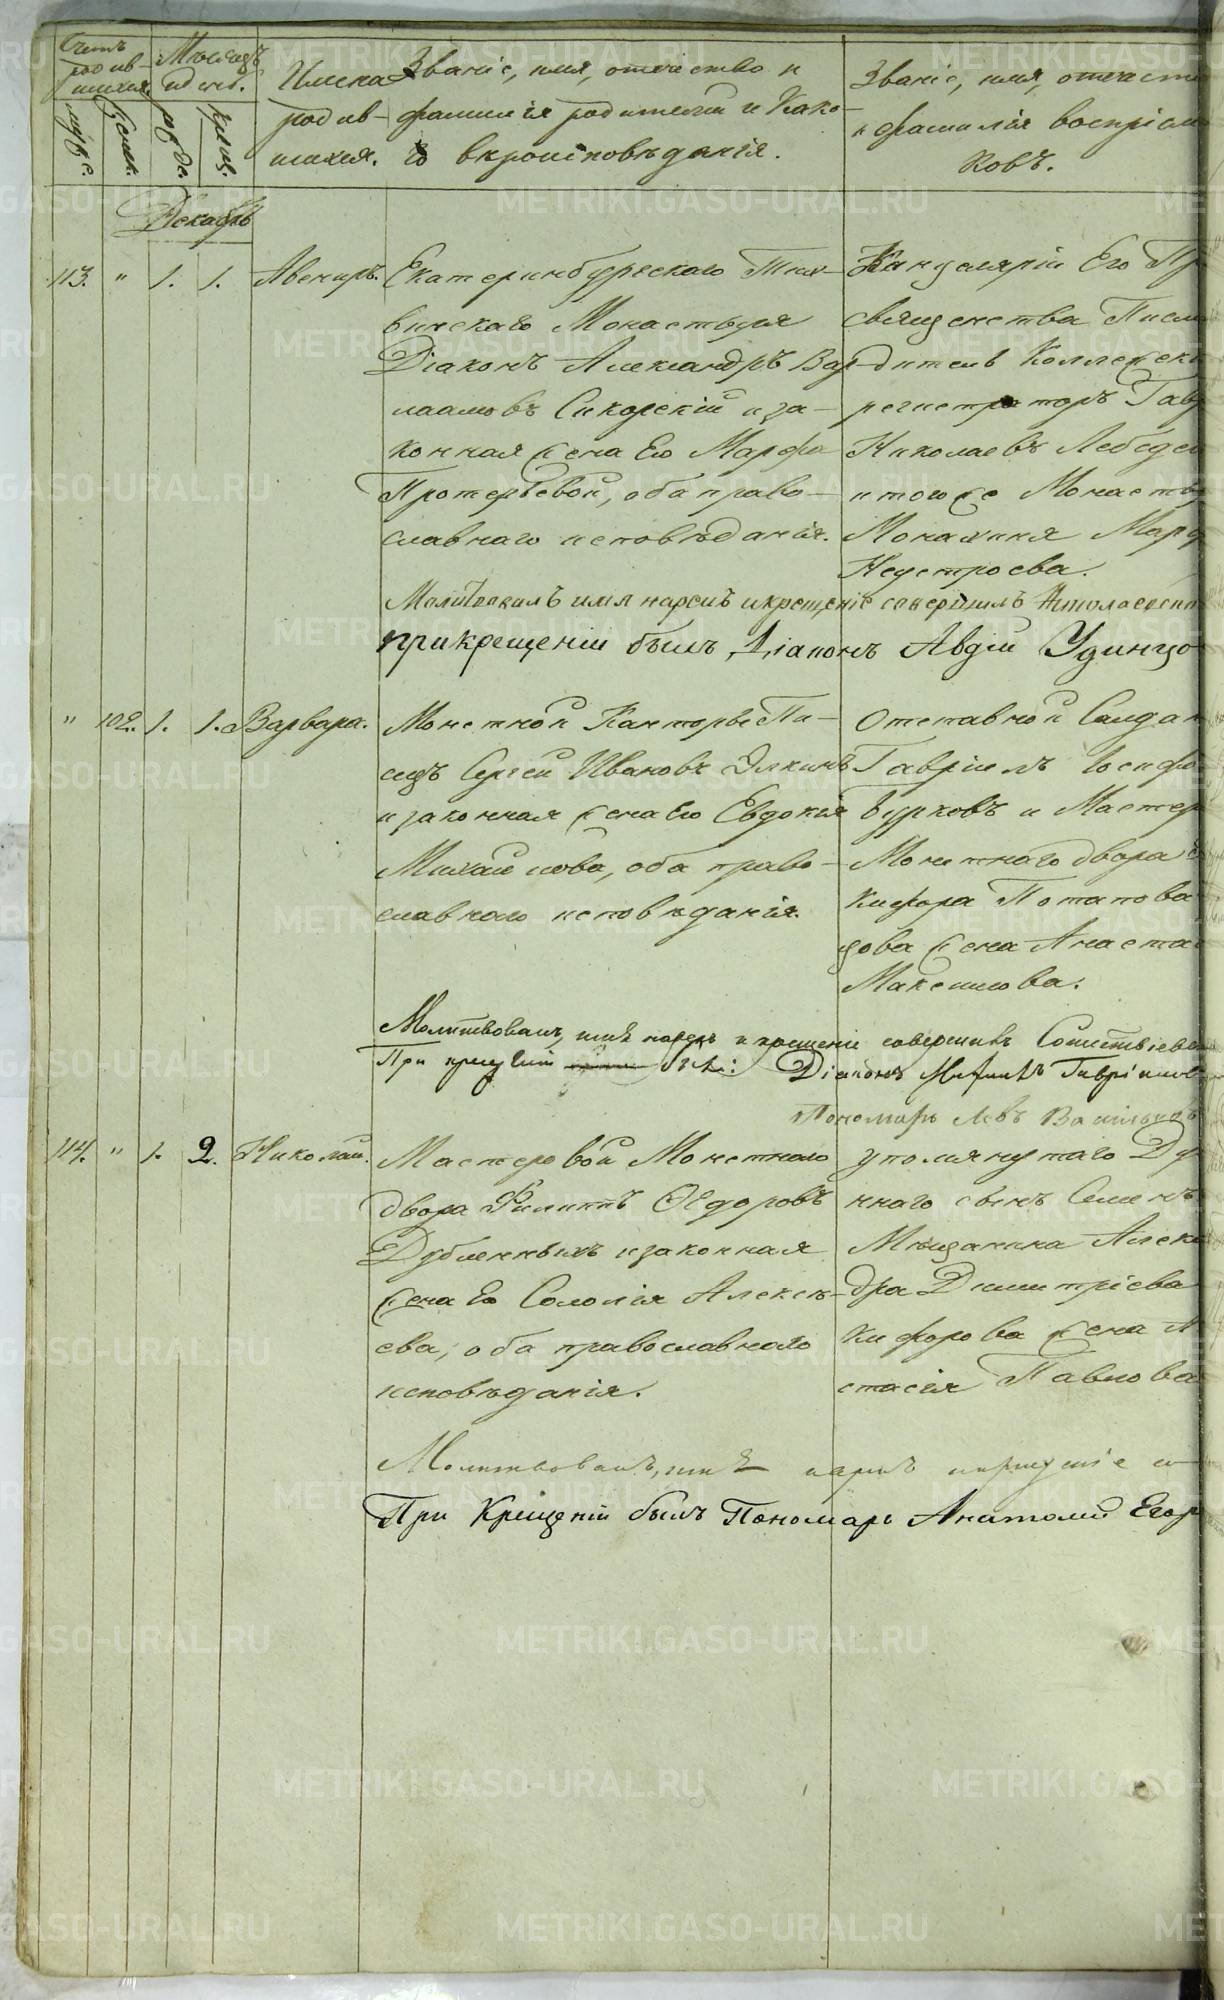 Счетъ родив-шихся
Мѣсяцъ и день.
Имена родив-шихся.
Званіе, имя, отчество и
фамилія родителей и како-
го вѣроисповѣданія.
Званіе, имя, отчест
и фамилія воспріем
ковъ.
муж. женск. рожде. крещ.
Декабрь
113. " 1. 1. Авениръ.
Екатеринбургскаго Тих-
винскаго Монастыря
Діаконъ Александръ Вар-
лаамовъ Сикорскій и за-
конная жена Его Марфа
Протерьевой, оба право-
славнаго исповѣданія.
Канцеляріи Его Пр
священства Письмо
дитель Коллежск
регистраторъ Гавр
Николаевъ Лебедев
и тогоже Монасты
Монахиня Марф
Неустроева.
Молитвовалъ имя нарекъ и крещеніе совершилъ
При крещеніи былъ Діаконъ Авдій Удинцо
" 102. 1. 1. Варвара.
Монетной Канторы Пи-
сецъ Сергей Ивановъ Элкинъ
и законная жена Его Евдокія
Михайлова, оба право-
славнаго исповѣданія.
Отставной Салдат
Гавріилъ Іосифо
Бурковъ и Мастер
Монетнаго двора
кифора Потапова
цова жена Анаста
Максимова.
Молитвовалъ, имя нарекъ и крещеніе совершилъ
При крещеніи былъ: Діаконъ Гавріилов
Пономарь Левъ
114. " 1. 2. Николай.
Мастеровой Монетнаго
двора Филиппъ Ѳедоровъ
Дубленныхъ и законная
жена Его Соломія Алексѣ-
ева, оба православнаго
исповѣданія.
упомянутаго Ду
ннаго сынъ Семенъ
Мѣщанина Алекс
дра Димитріева
кифорова жена А
стасія Павлова
Молитвовалъ, имя нарекъ и крещеніе
При Крещеніи былъ Пономарь Анатолій Егор
METRIKI.GASO-URAL.RU